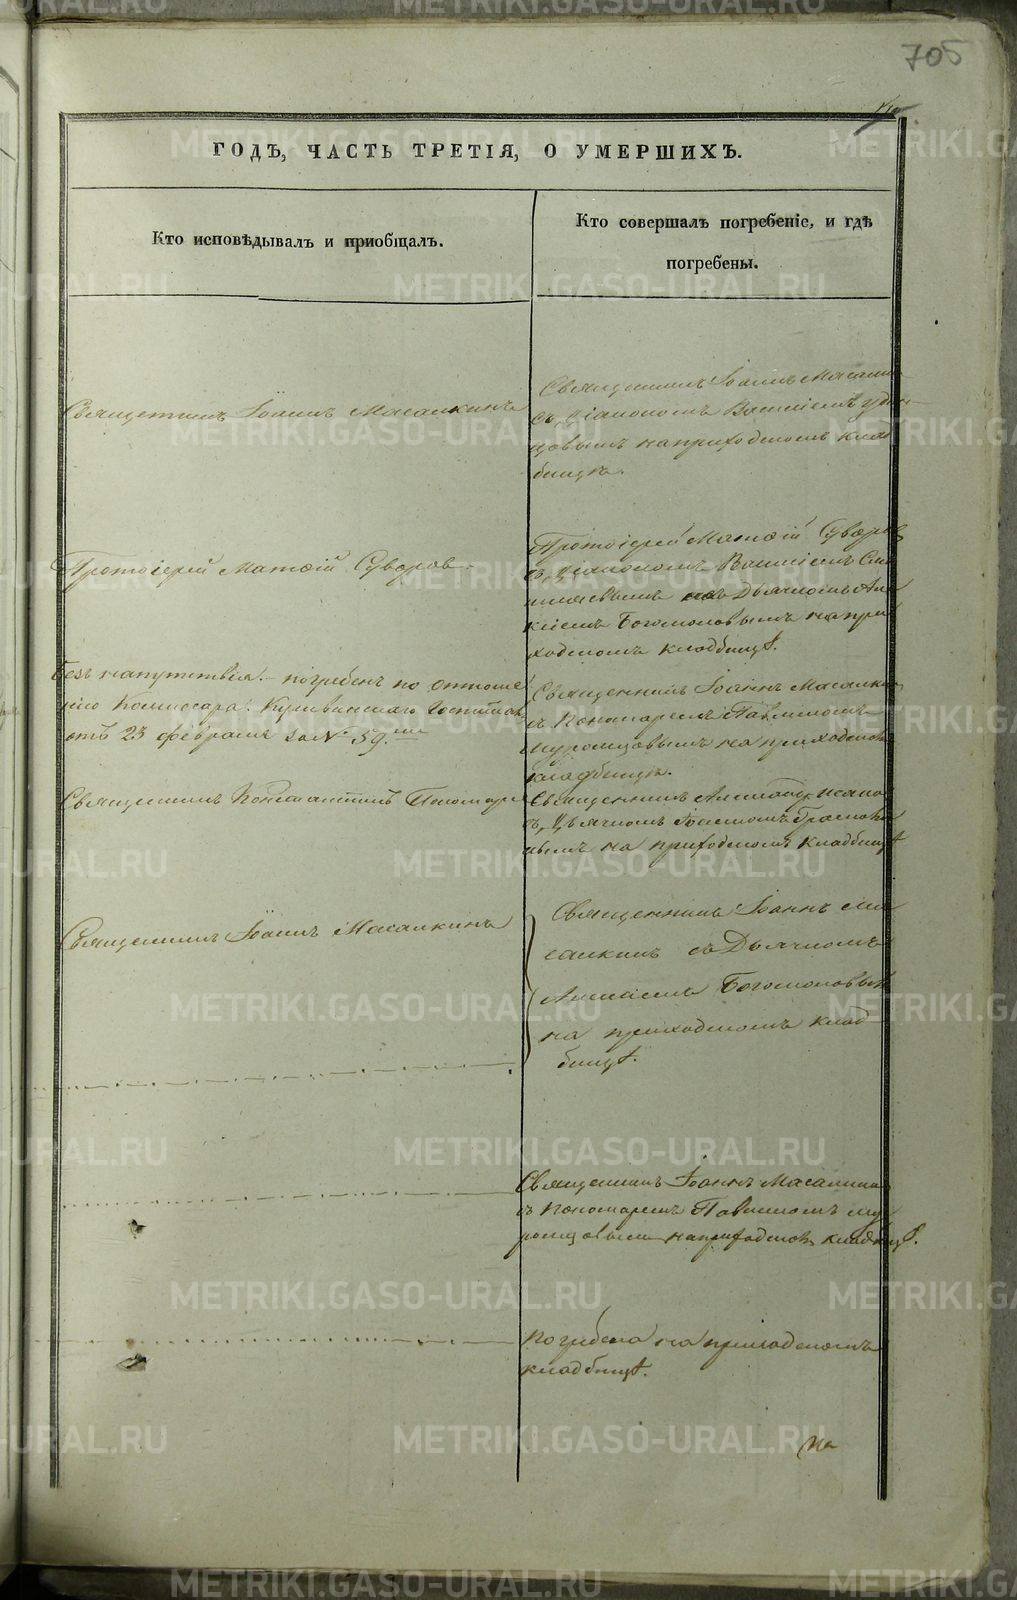 705
ГОДЪ, ЧАСТЬ ТРЕТІЯ, О УМЕРШИХЪ.
Кто исповѣдывалъ и пріобщалъ.
Кто совершалъ погребеніе, и гдѣ
погребены.
Священникъ Іоаннъ Масалкинъ
Священникъ Іоаннъ Масалки
съ Діакономъ Василіемъ Удин
цовымъ на приходскомъ клад
бищѣ.
Протоіерей Матѳій Суворов
Протоіерей Матѳій Суворов
съ Діакономъ Василіемъ
Дьячкомъ Але
ксіемъ Богомоловымъ на при
ходскомъ кладбищѣ.
Безъ напутствія. погребенъ по отноше
нію Коммисара Кушвинскаго Госпиталя
отъ 23 февраля за № 59.
Священникъ Іоаннъ Масалкин
съ Пономаремъ Павлиномъ
Муромцовымъ на приходском
кладбищѣ.
Священникъ Константинъ Пономаре
Священникъ Александръ
съ Дьячкомъ
на приходскомъ кладбищѣ
Священникъ Іоаннъ Масалкинъ
Священникъ Іоаннъ Ма
салкинъ съ Дьячкомъ
Алексіемъ Богомоловымъ
на приходскомъ клад
бищѣ.
Священникъ Іоаннъ Масалкин
съ Пономаремъ Павлиномъ Му
ромцовымъ на приходском кладбищѣ.
Погребена на приходскомъ
кладбищѣ.
METRIKI.GASO-URAL.RU